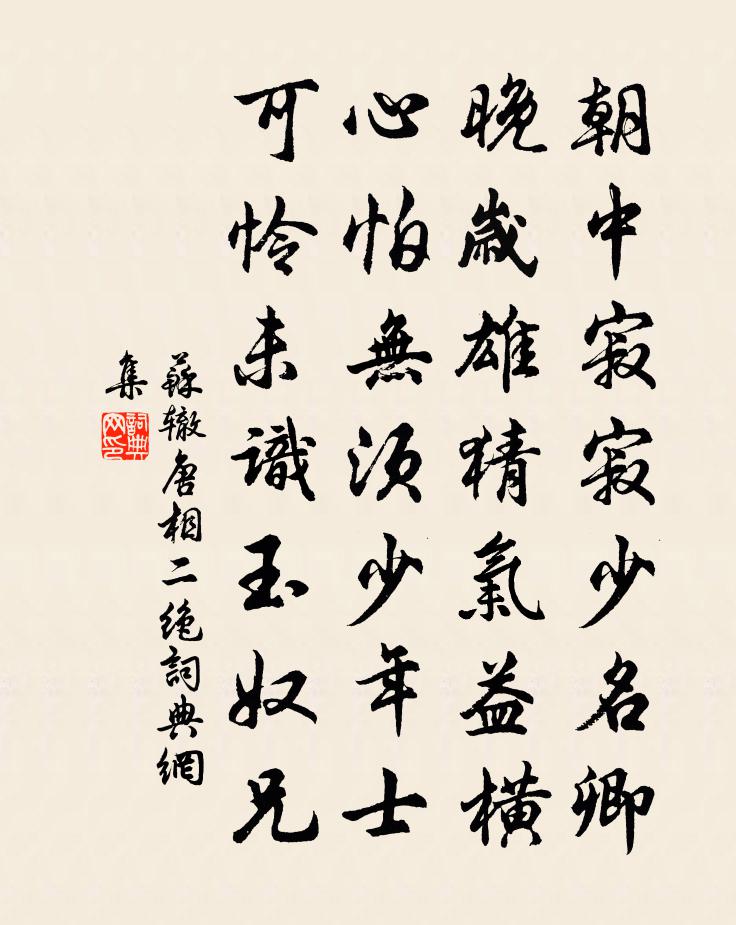 朝中寂寂少名卿
晚歲雄猜氣益橫
心怕無須少年士
可怜未識玉奴兄
蘇辙唐相二絶詞典網
集
詞典
网印